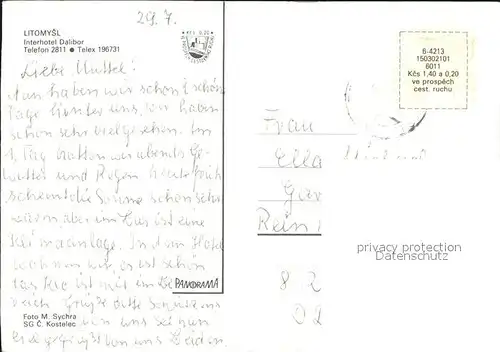 29. 7.
LITOMYŠL
Interhotel Dalibor
Telefon 2811 ● Telex 196731
Kčs 0,20
Liebe Muttel!
Nun haben wir schon 1 schön
Tage hinter uns, wir haben
schon sehr viel gesehen. Im
1. Tag hatten wir abends Ge-
witter und Regen heute früh
scheint die Sonne schon sehr
warm aber im Bus ist eine
Klimaanlage. In dem Hotel
wohnen wir, es ist schön
das ist mit im
reich Grüße bitte
von uns Sei nun
gegrüßt von uns Beiden.
PANORAMA
Foto M. Sychra
SG Č. Kostelec
6-4213
150302101
6011
Kčs 1,40 a 0,20
ve prospěch
cest. ruchu
Frau
Ella
Gar
Rein
privacy protection
Datenschutz
8 2
02